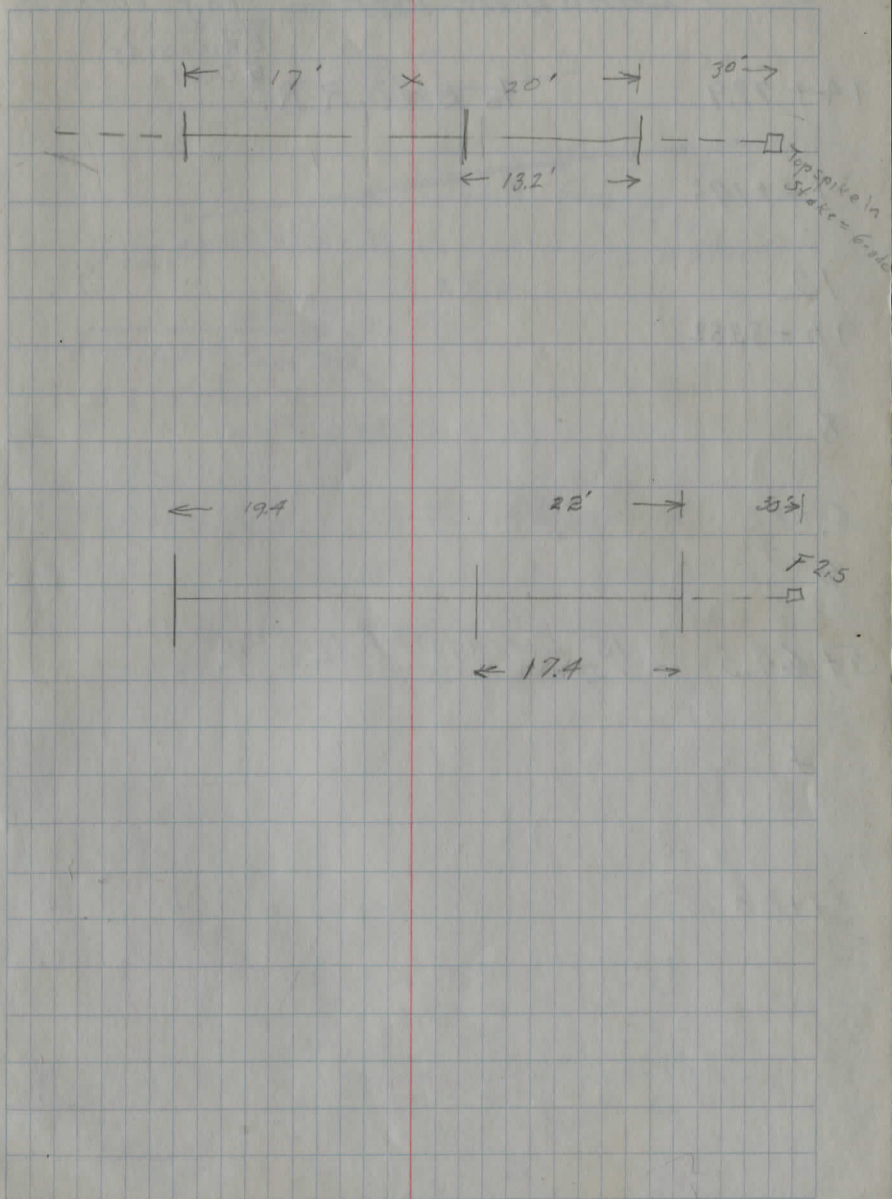 17' 20' 30'
13.2'
Top spike in
Stake = Grade
19.4 22' 30'
F 2.5
17.4